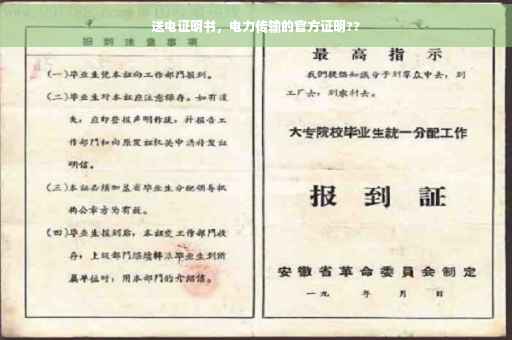 送电证明书，电力传输的官方证明??
报到注意事项
(一)毕业生凭本证向工作部门报到。
(二)毕业生对本证应注意保存。如有遗
失，应即登报声明作废，并报告工
作部门和向原发证机关申请补发证
明信。
(三)本证必须加盖省毕业生分配领导机
构公章方为有效。
(四)毕业生报到后，本证交工作部门收
存；上级部门继续转派毕业生到所
属单位时，用本部门的介绍信。
最高指示
我们提倡知识分子到群众中去，到
工厂去，到农村去。
大专院校毕业生统一分配工作
报到证
安徽省革命委员会制定
一九 年 月 日